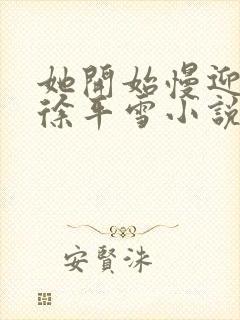 她開始慢迎
徐平雪小說
安賢洙